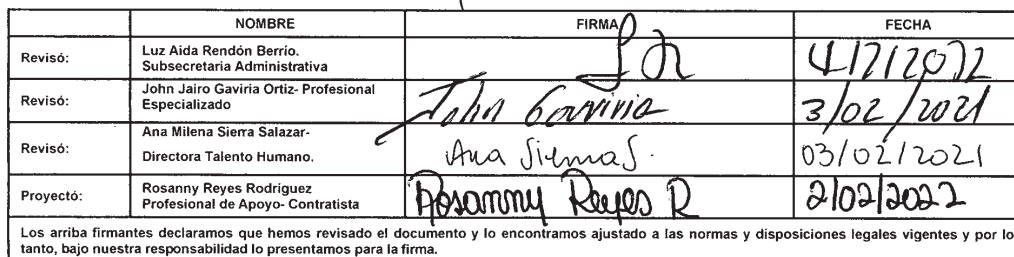 NOMBRE FIRMA FECHA
Revisó: Luz Aida Rendón Berrío.
Subsecretaria Administrativa
4/2/2022
Revisó: John Jairo Gaviria Ortiz- Profesional
Especializado
John Gaviria 3/02/2021
Revisó: Ana Milena Sierra Salazar-
Directora Talento Humano.
Ana Sierra S. 03/02/2021
Proyectó: Rosanny Reyes Rodriguez
Profesional de Apoyo- Contratista
Rosanny Reyes R 2/02/2022
Los arriba firmantes declaramos que hemos revisado el documento y lo encontramos ajustado a las normas y disposiciones legales vigentes y por lo
tanto, bajo nuestra responsabilidad lo presentamos para la firma.